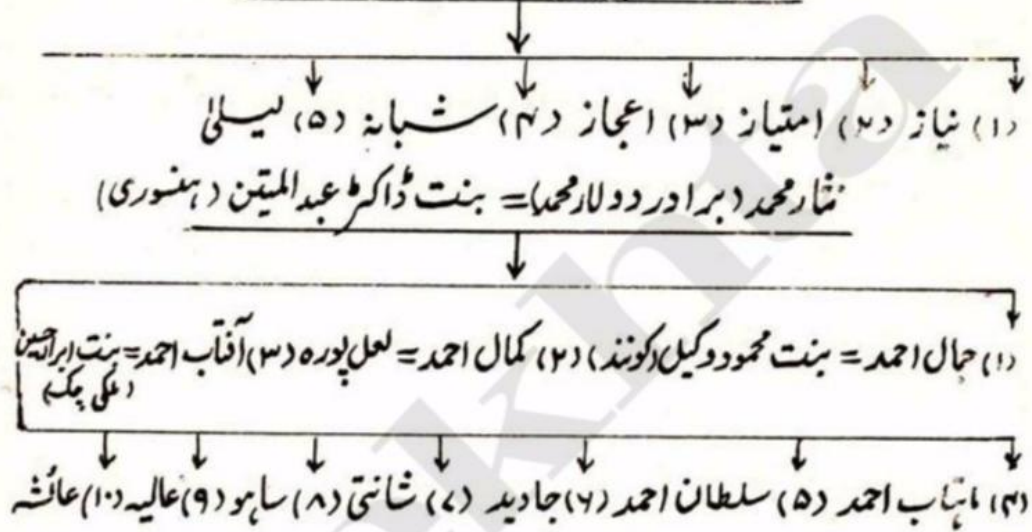 (۱) نیاز (۲) امتیاز (۳) اعجاز (۴) شبانہ (۵) لیلیٰ
نثار محمد (برادر دولار محمد) = بنت ڈاکٹر عبدالمتین (ہنسوری)
(۱) جمال احمد = بنت محمود وکیل (کونند) (۲) کمال احمد = لعل پورہ (۳) آفتاب احمد = بنت ابرار حسین
(ملکی چک)
(۴) ماہتاب احمد (۵) سلطان احمد (۶) جاوید (۷) شانتی (۸) ساہو (۹) عالیہ (۱۰) عائشہ